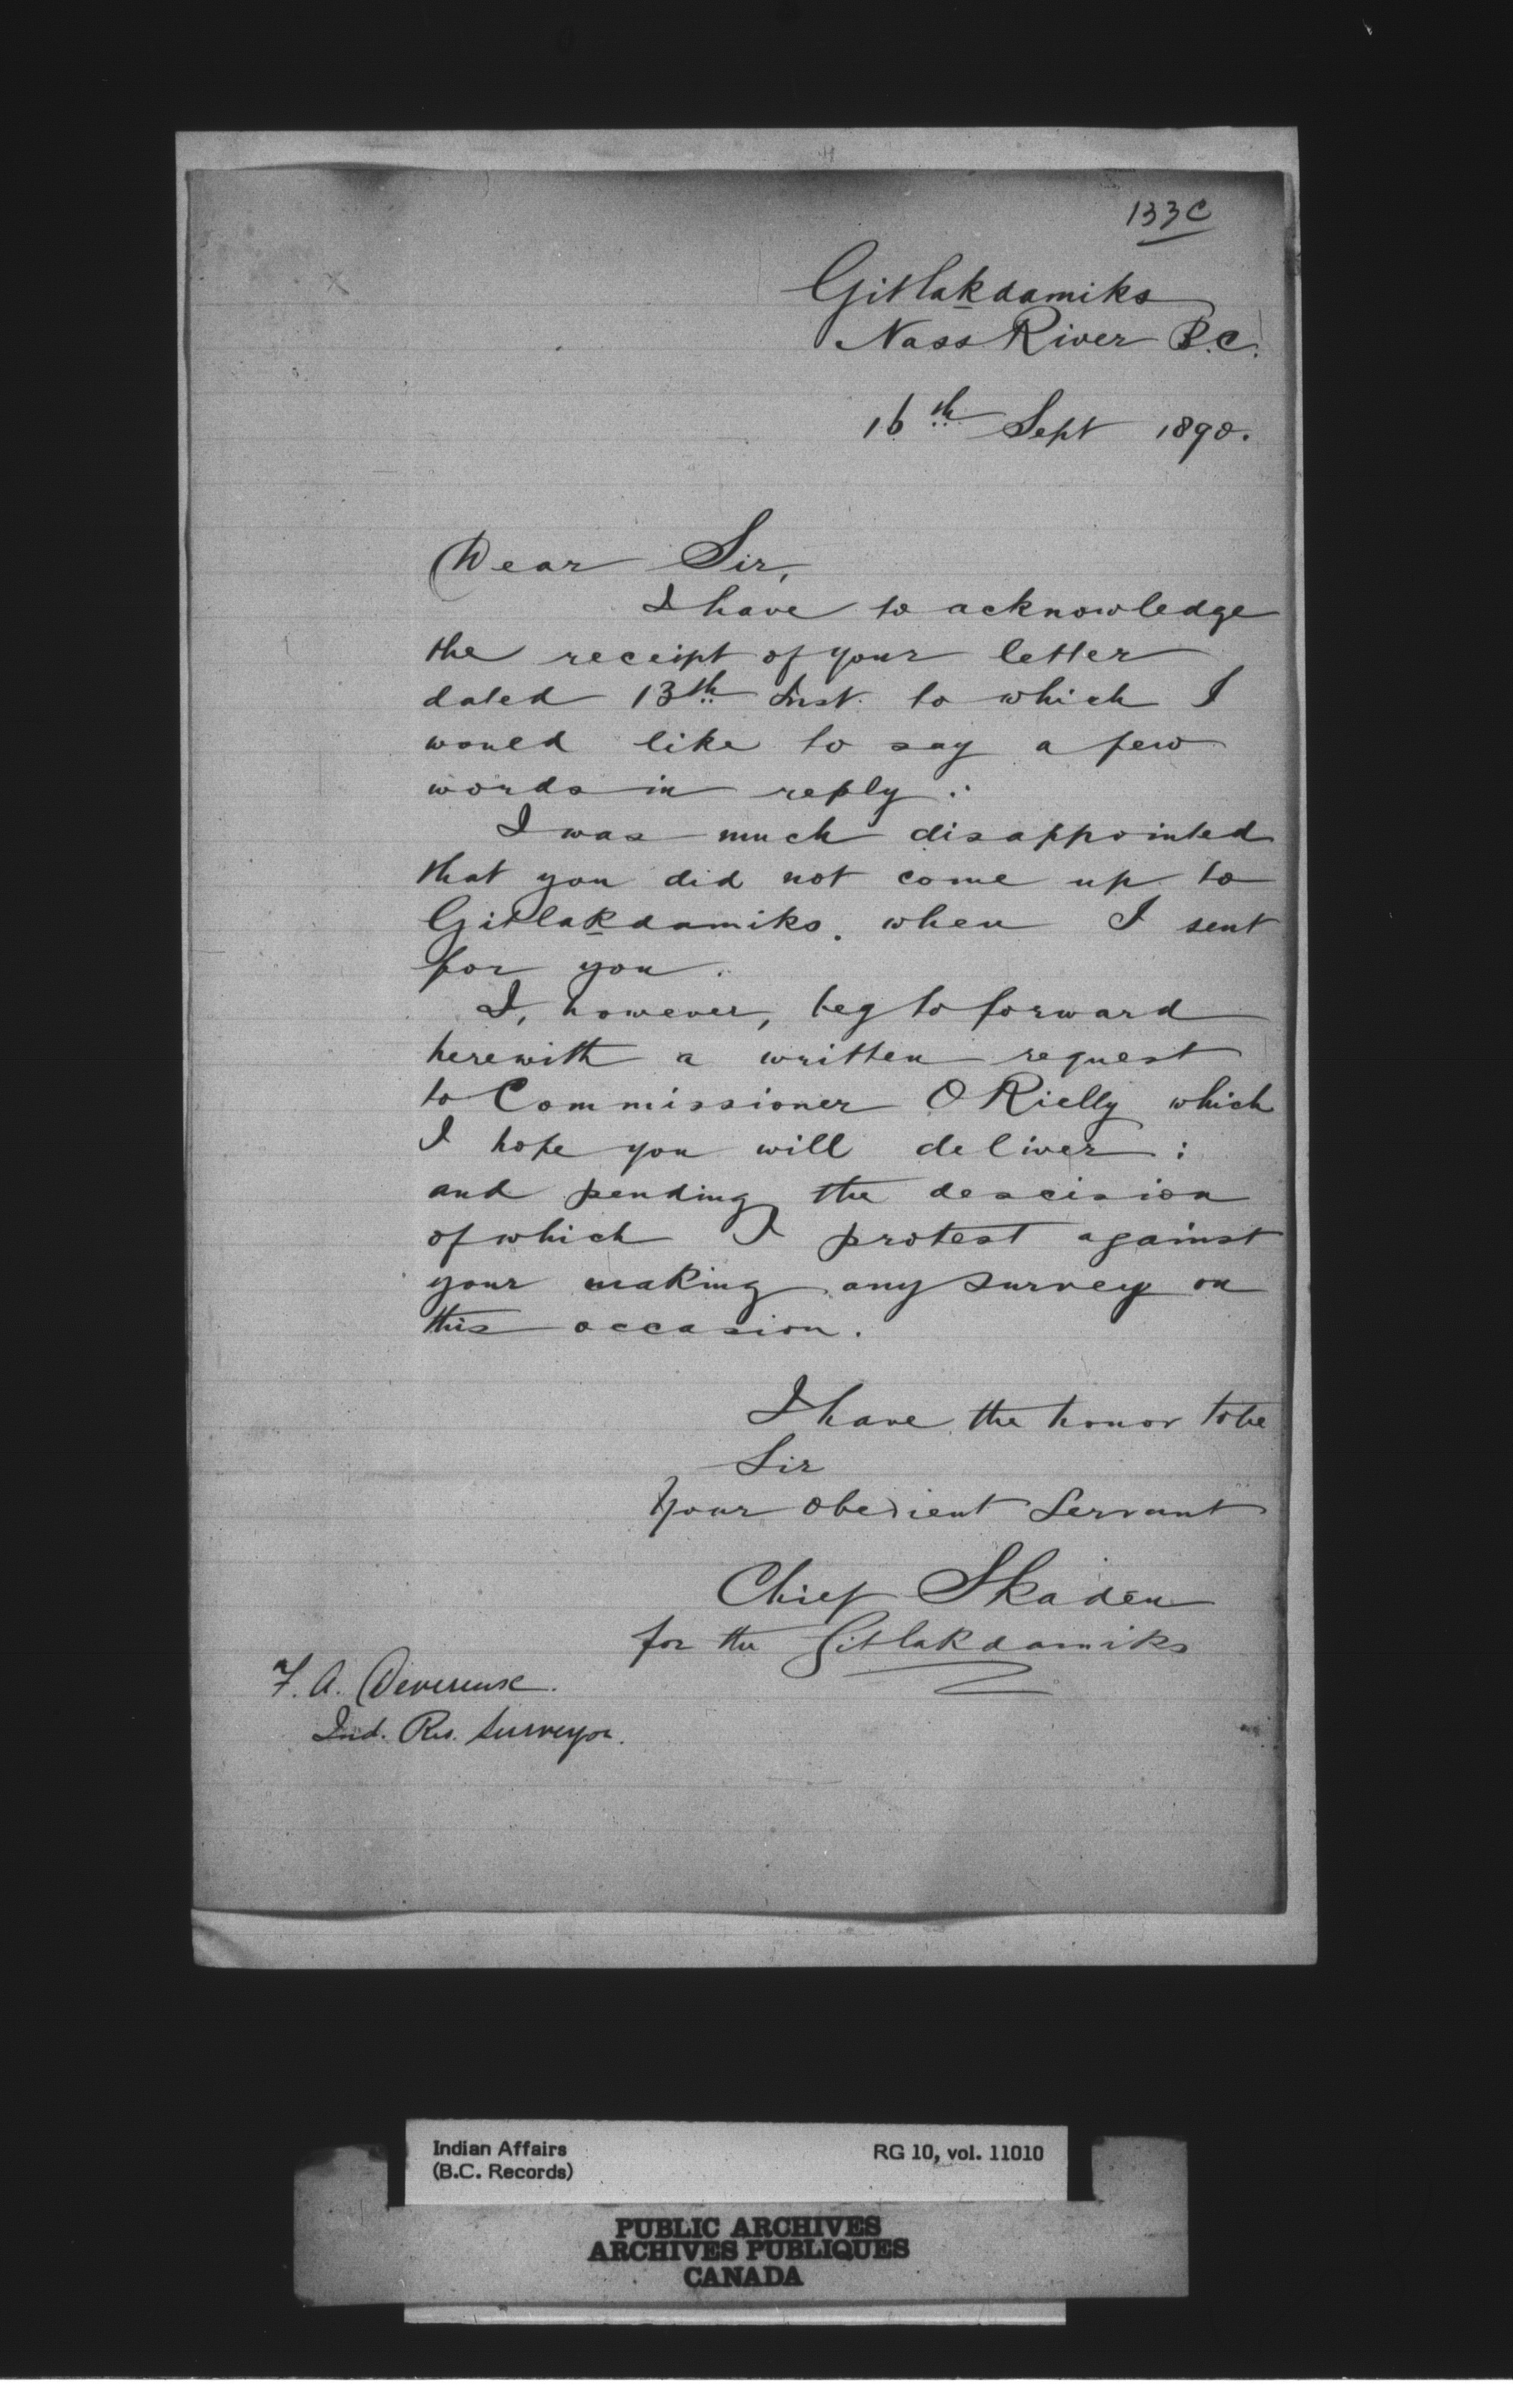 133C
Gitlakdamiks
Nass River B.C.
16th Sept 1890.
Dear Sir,
I have to acknowledge
the receipt of your letter
dated 13th Inst. to which I
would like to say a few
words in reply :
I was much disappointed
that you did not come up to
Gitlakdamiks. when I sent
for you.
I, however, beg to forward
herewith a written request
to Commissioner O Rielly which
I hope you will deliver :
and pending the descision
of which I protest against
your making any survey on
this occasion.
I have the honor to be
Sir
Your Obedient Servant
Chief Skaden
for the Gitlakdamiks
F. A. Devereux.
Ind. Res. Surveyor.
Indian Affairs RG 10, vol. 11010
(B.C. Records)
PUBLIC ARCHIVES
ARCHIVES PUBLIQUES
CANADA